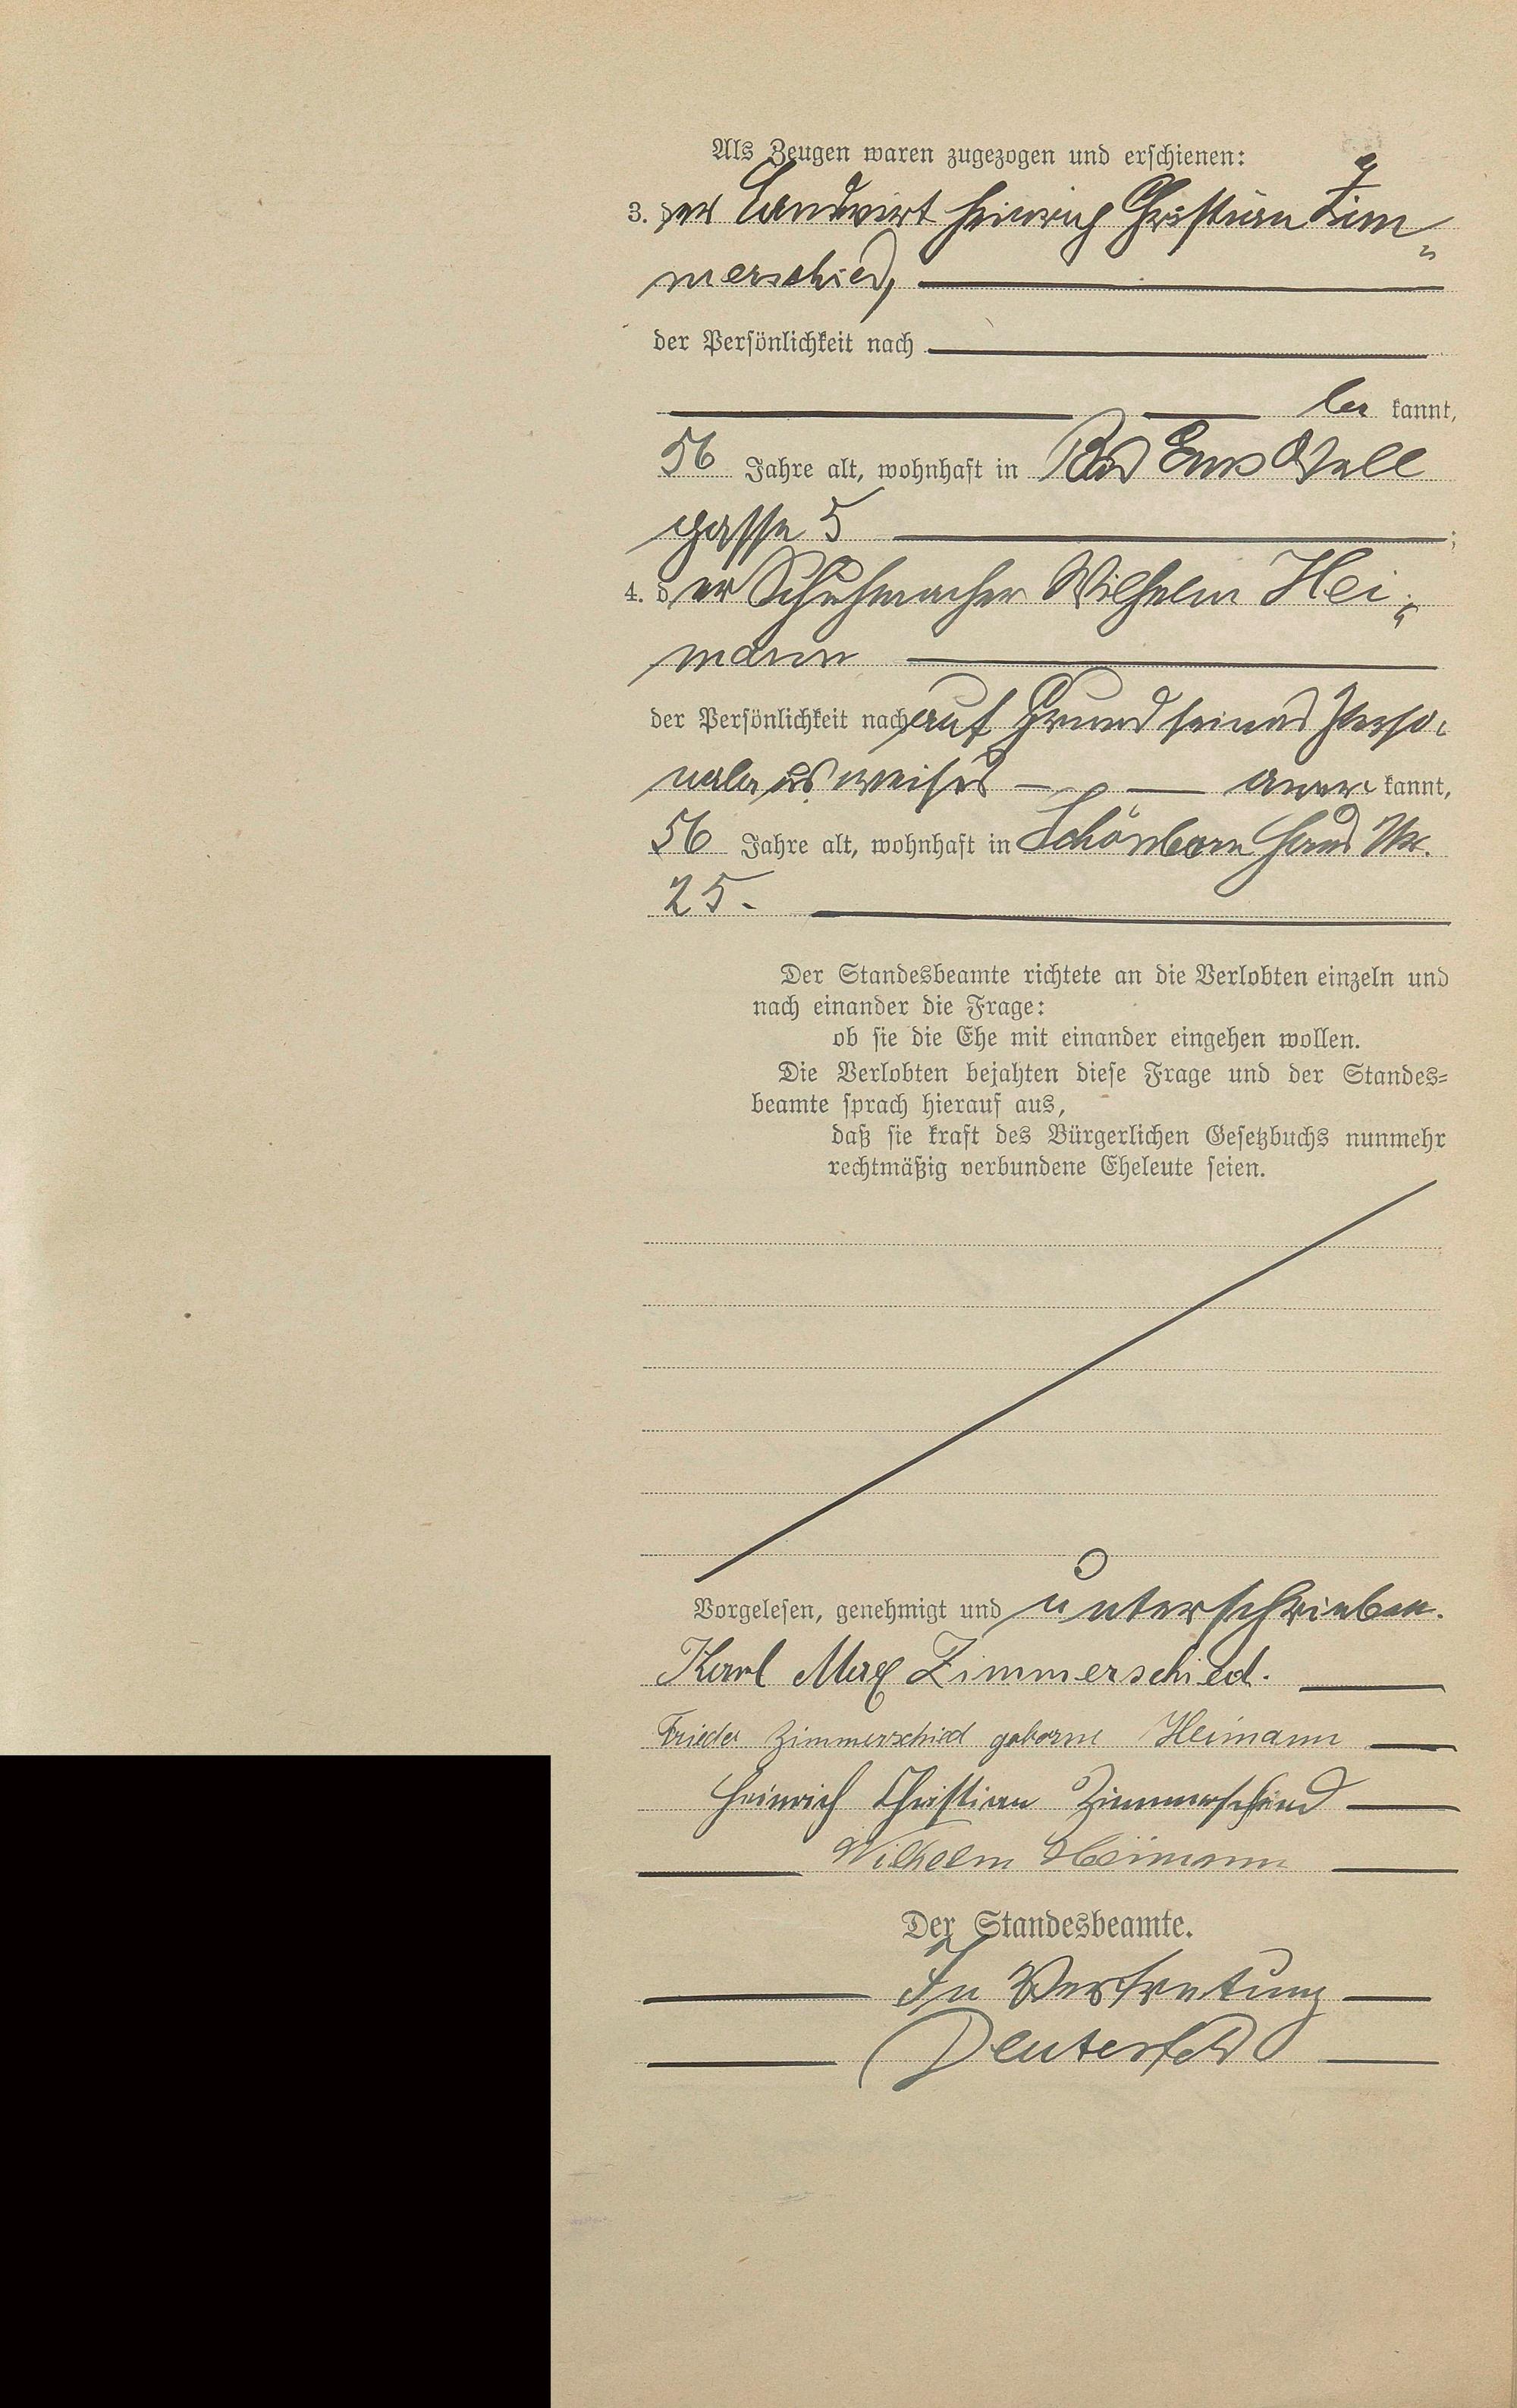 Als Zeugen waren zugezogen und erschienen:
3. der Landwirt Heinrich Christian Zim-
merschied,
der Persönlichkeit nach
be kannt,
56 Jahre alt, wohnhaft in Bad Ems
gasse 5 ;
4. der Schuhmacher Wilhelm Hei-
mann
der Persönlichkeit nach auf Grund seines Perso-
nalausweises aner kannt,
56 Jahre alt, wohnhaft in Schönborn Haus Nr.
25.
Der Standesbeamte richtete an die Verlobten einzeln und
nach einander die Frage:
ob sie die Ehe mit einander eingehen wollen.
Die Verlobten bejahten diese Frage und der Standes-
beamte sprach hierauf aus,
daß sie kraft des Bürgerlichen Gesetzbuchs nunmehr
rechtmäßig verbundene Eheleute seien.
Vorgelesen, genehmigt und unterschrieben.
Karl Max Zimmerschied.
Frieda Zimmerschied geborne Heimann
Heinrich Christian Zimmerschied
Wilhelm Heimann
Der Standesbeamte.
In Vertretung